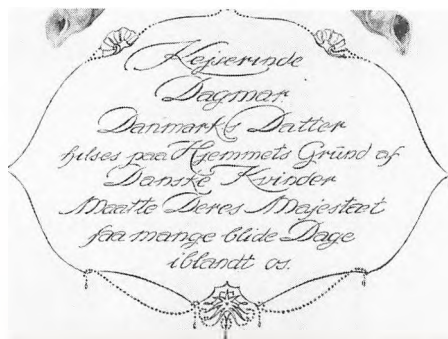 Kejserinde
Dagmar
Danmarks Datter
hilses paa Hjemmets Grund af
Danske Kvinder
Maatte Deres Majestæt
faa mange blide Dage
iblandt os.